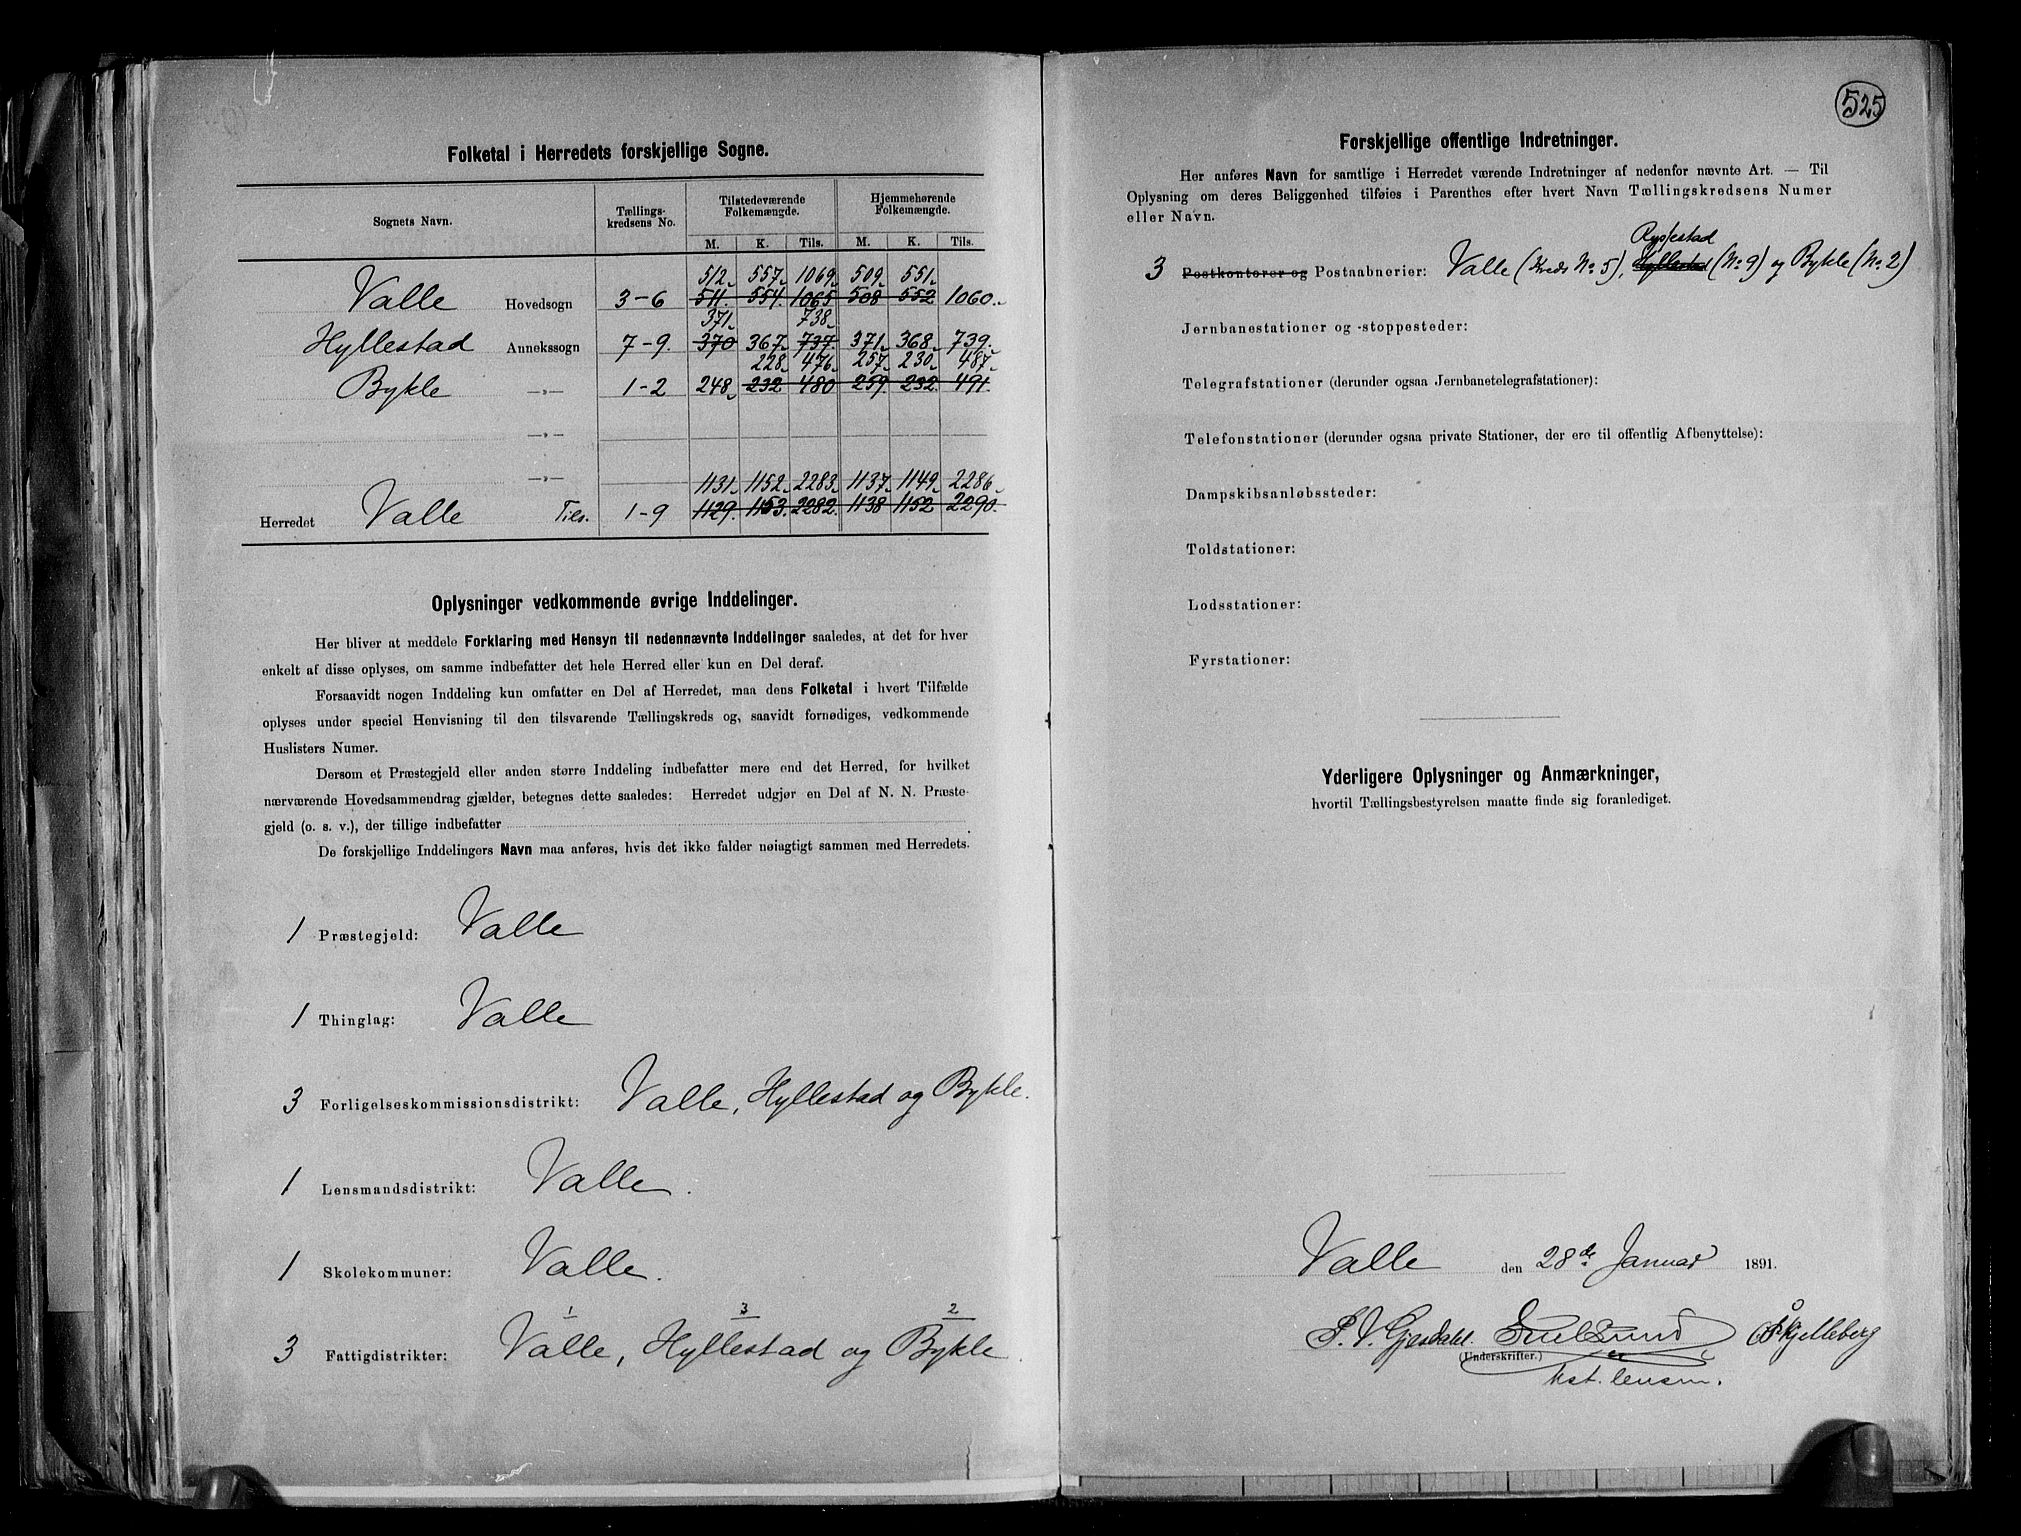 Folketal i Herredets forskjellige Sogne.
Sognets Navn. Tællings- kredsens No. Tilstedeværende Folkemængde. Hjemmehørende Folkemængde.
M. K. Tils. M. K. Tils.
512 557 1069 509 551
Valle Hovedsogn 3-6 511 554 1065 508 552 1060
371 738
Hyllestad Annekssogn 7-9 370 367 737 371 368 739
228 476 257 230 487
Bykle —„— 1-2 248 232 480 259 232 491
—„—
—„—
1131 1152 2283 1137 1149 2286
Herredet Valle Tils. 1-9 1129 1153 2282 1138 1152 2290
Oplysninger vedkommende øvrige Inddelinger.
Her bliver at meddele Forklaring med Hensyn til nedennævnte Inddelinger saaledes, at det for hver
enkelt af disse oplyses, om samme indbefatter det hele Herred eller kun en Del deraf.
Forsaavidt nogen Inddeling kun omfatter en Del af Herredet, maa dens Folketal i hvert Tilfælde
oplyses under speciel Henvisning til den tilsvarende Tællingskreds og, saavidt fornødiges, vedkommende
Huslisters Numer.
Dersom et Præstegjeld eller anden større Inddeling indbefatter mere end det Herred, for hvilket
nærværende Hovedsammendrag gjælder, betegnes dette saaledes: Herredet udgjør en Del af N. N. Præste-
gjeld (o. s. v.), der tillige indbefatter
De forskjellige Inddelingers Navn maa anføres, hvis det ikke falder nøiagtigt sammen med Herredets.
1 Præstegjeld: Valle
1 Thinglag: Valle
3 Forligelseskommissionsdistrikt: Valle, Hyllestad og Bykle.
1 Lensmandsdistrikt: Valle.
1 Skolekommuner: Valle.
1 3 2
3 Fattigdistrikter: Valle, Hyllestad og Bykle.
525
Forskjellige offentlige Indretninger.
Her anføres Navn for samtlige i Herredet værende Indretninger af nedenfor nævnte Art. — Til
Oplysning om deres Beliggenhed tilføies i Parenthes efter hvert Navn Tællingskredsens Numer
eller Navn.
Rysestad
3 Postkontorer og Postaabnerier: Valle (Kreds No. 5), Hyllestad (No. 9) og Bykle (No. 2)
Jernbanestationer og -stoppesteder:
Telegrafstationer (derunder ogsaa Jernbanetelegrafstationer):
Telefonstationer (derunder ogsaa private Stationer, der ere til offentlig Afbenyttelse):
Dampskibsanløbssteder:
Toldstationer:
Lodsstationer:
Fyrstationer:
Yderligere Oplysninger og Anmærkninger,
hvortil Tællingsbestyrelsen maatte finde sig foranlediget.
Valle den 28de Januar 1891.
P. V. Gjesdahl.
(Underskrifter.)
kst. lensm.